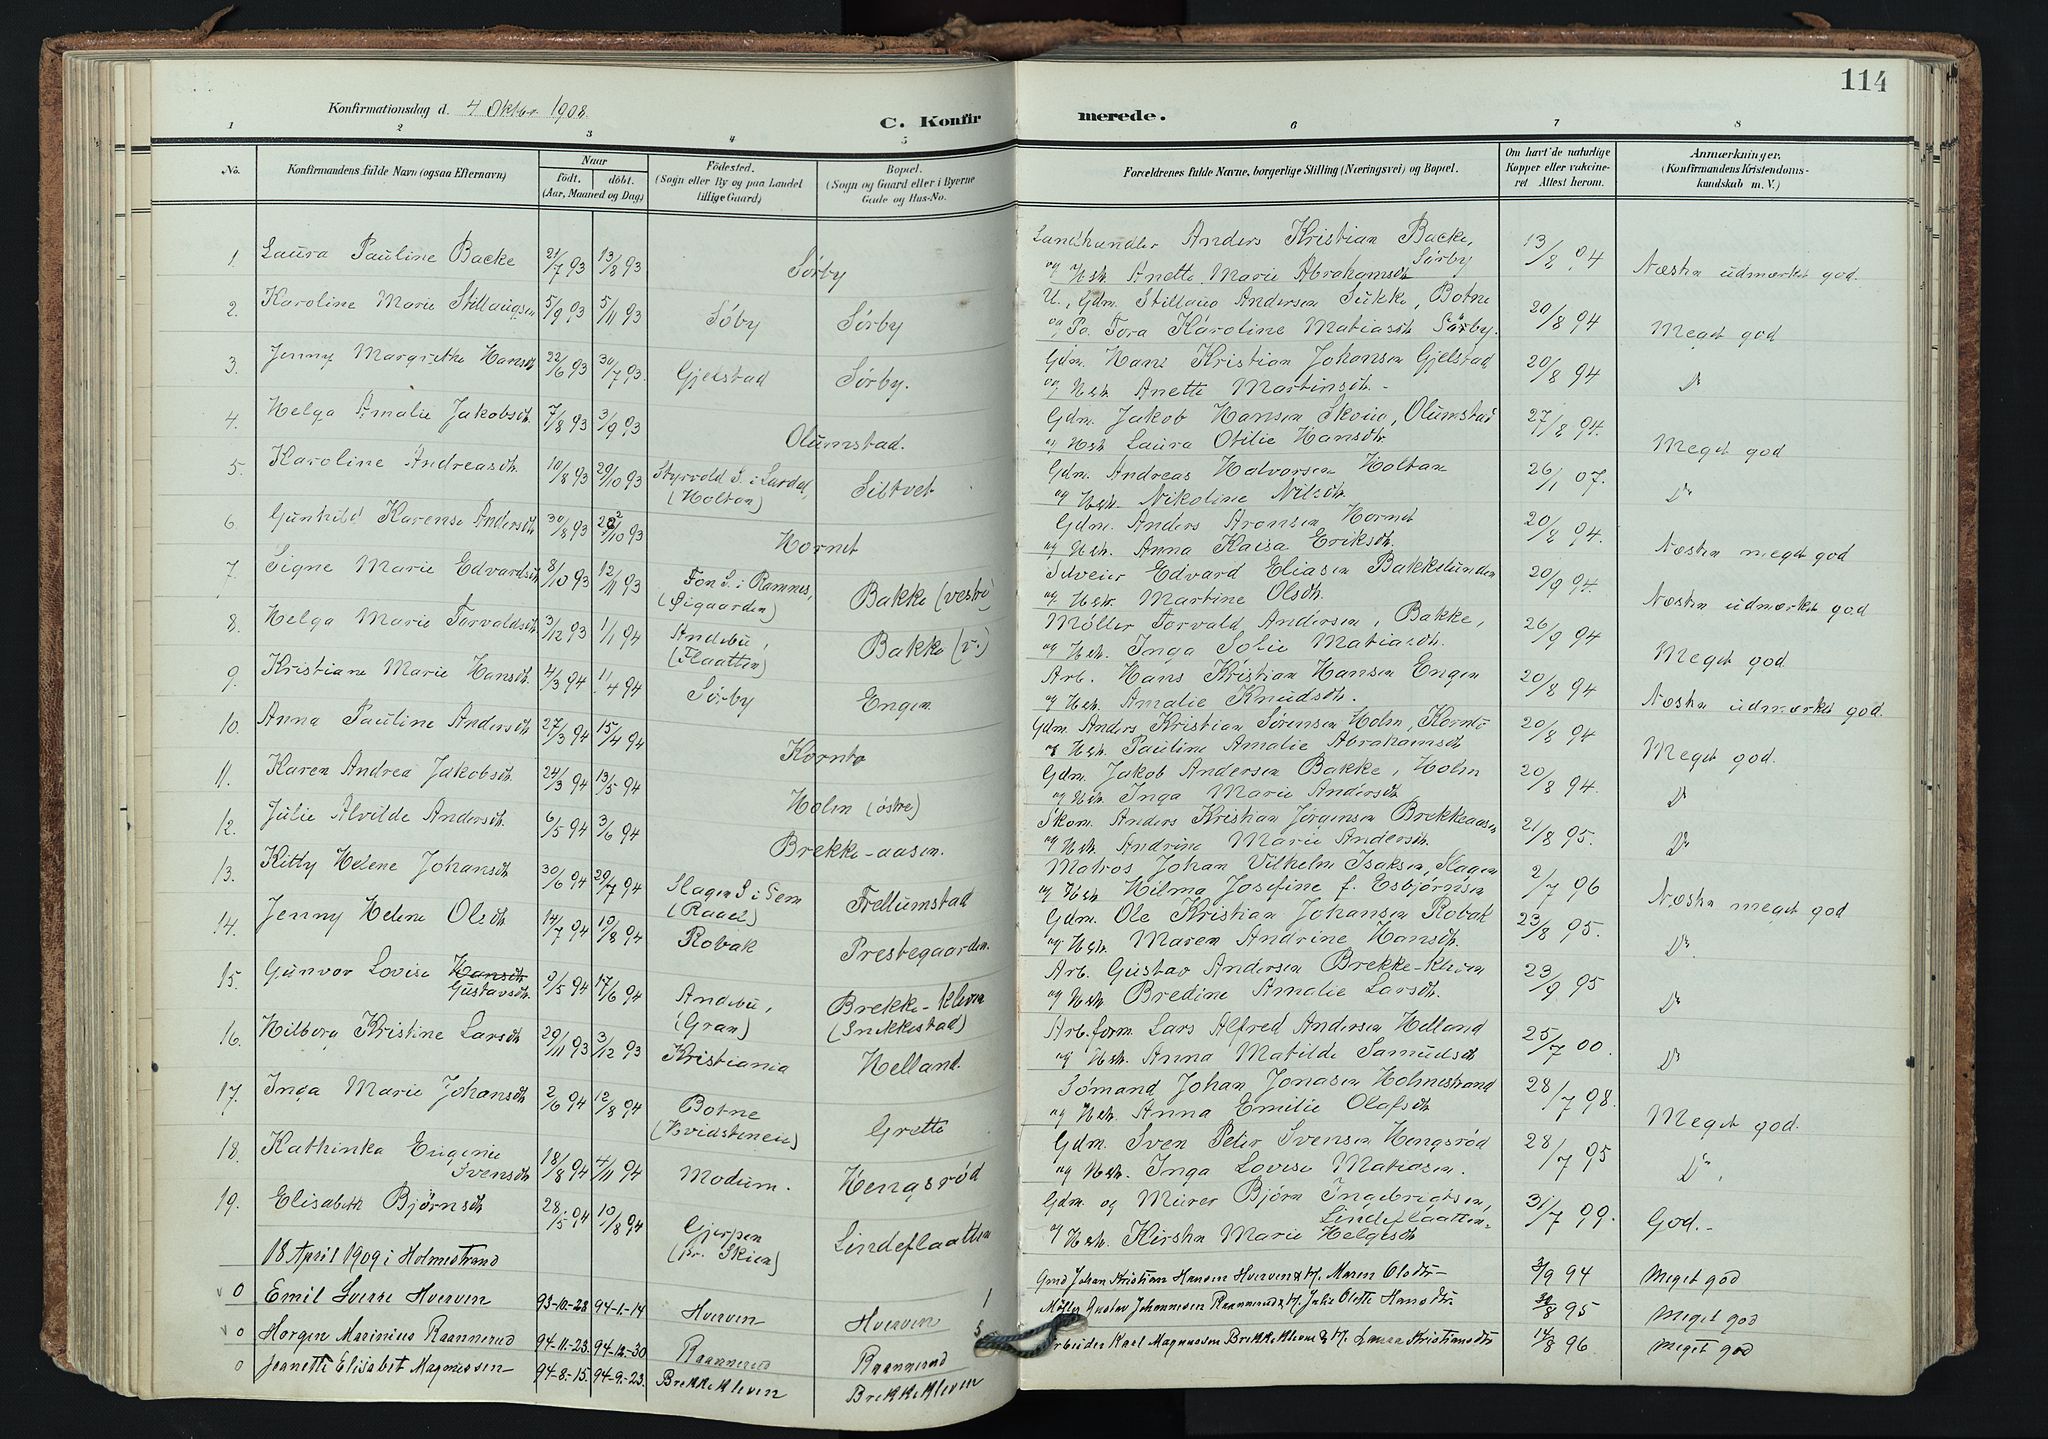 114
Konfirmationsdag d. 4 Oktbr 1908.
C. Konfirmerede.
1 2 3 4 5 6 7 8
No.
Konfirmandens fulde Navn (ogsaa Efternavn)
Naar
født. døbt.
(Aar, Maaned og Dag)
Födested.
(Sogn eller By og paa Landet
tillige Gaard)
Bopæl.
(Sogn og Gaard eller i Byerne
Gade og Hus-No.
Forældrenes fulde Navne, borgerlige Stilling (Næringsvei) og Bopæl.
Om havt de naturlige
Kopper eller vakcine-
ret Attest herom.
Anmærkninger.
(Konfirmandens Kristendoms-
kundskab m. V.)
1. Laura Pauline Backe 21/7 93 13/8 93 Sørby
Landhandler Anders Kristian Backe, Sørby
og Hst. Anette Marie Abrahamsdt 13/8 94 Næsten udmærket god.
2. Karoline Marie Stillaugsen 5/9 93 5/11 93 Søby Sørby
U., Gdm. Stillaug Andersen Sukke, Botne
og Po. Tora Karoline Matiasdt Sørby. 20/8 94 Meget god
3. Jenny Margrethe Hansdt 22/6 93 30/7 93. Gjelstad Sørby.
Gdm. Hans Kristian Johansen Gjelstad
og Hst. Anette Martinsdt. - 20/8 94 Do
4. Helga Amalie Jakobsdt. 7/8 93 3/9 93 Olumstad.
Gdm. Jakob Hansen Skoug, Olumstad
og Hst Laura Otilie Hansdtr. 27/8 94. Meget god
5. Karoline Andreasdt. 10/8 93 29/10 93 Styrvold S. i Lardal, (Holtan) Siltvet
Gdm. Andreas Halvorsen Holtan
og Hst. Nikoline Nilsdt. 26/1 07. Do
6. Gunhild Karense Andersdt 30/8 93 22/10 93 Hornet
Gdm. Anders Aronsen Hornet
og Hst. Anna Kaisa Eriksdt. 20/8 94. Næsten meget god
7. Signe Marie Edvardsdt 8/10 93 12/11 93 Fon S. i Ramnes, (Øigaarden) Bakke (vestre)
Selveier Edvard Eliasen Bakkelunden
og Hst. Martine Olsdt. 20/9 94. Næsten udmærket god
8. Helga Marie Torvaldsdt 3/12 93 1/1 94 Andebu, (Flaatten) Bakke (v.)
Möller Torvald Andersen, Bakke,
og Hst. Inga Sofie Matiasdt. 26/9 94 Meget god
9. Kristiane Marie Hansdt. 4/3 94 11/4 94 Sørby Engen
Arb. Hans Kristian Hansen Engen
og Hst. Amalie Knudsdt. 20/8 94 Næsten udmærket god.
10. Anna Pauline Andersdt. 27/3 94 15/4 94 Kornto
Gdm. Anders Kristian Sørensen Holm, Kornto
og Hst. Pauline Amalie Abrahamsdt 20/8 94 Meget god.
11. Karen Andrea Jakobsdt. 24/3 94 13/5 94 Holm (østre)
Gdm. Jakob Andersen Bakke, Holm
og Hst. Inga Marie Andersdt 20/8 94. Do
12. Julie Alvilde Andersdt. 6/5 94 3/6 94 Brekke-aasen.
Skom. Anders Kristian Jörgensen Brekkeaasen
og Hst. Andrine Marie Andersdt. 21/8 95. Do
13. Kitty Helene Johansdt 30/6 94 29/7 94 Slagen S. i Sem (Raael) Frellumstad
Matros Johan Vilhelm Isaksen, Slagen
og Hst Hilma Josefine f. Esbjørnsen 2/7 96 Næsten meget god
14. Jenny Helene Olsdt 14/7 94 19/8 94 Robak Prestegaarden.
Gdm. Ole Kristian Johansen Robak
og Hst. Maren Andrine Hansdt. 23/8 95. Do.
15. Gunvor Lovise Hansdt
Gustavsdt. 2/5 94 17/6 94 Andebu, (Gran) Brekke-kleven (Snekkestad)
Arb. Gustav Andersen Brekke-kleven
og Hst. Bredine Amalie Larsdt. 23/9 95 Do
16. Hilborg Kristine Larsdt 29/11 93 3/12 93 Kristiania Helland.
Arb.form. Lars Alfred Andersen Helland
og Hst. Anna Matilde Samuelsdt 25/7 00. Do
17. Inga Marie Johansdt 2/6 94 12/8 94 Botne (Hvidsteneie) Grette
Sömand Johan Jonasen Holmestrand
og Hst. Anna Emilie Olafsdt 28/7 98. Meget god.
18. Kathinka Eugenie
Svensdt 18/8 94 4/11 94 Modum. Hengsrød
Gdm. Sven Peter Svensen Hengsrød
og Hst. Inga Lovise Matiasen. 28/7 95 Do.
19. Elisabeth Bjørnsdt 28/5 94 19/8 94 Gjerpen (pr. Skien) Lindeflaatten
Gdm. og Murer Bjørn Ingebrigtsen, Lindeflaatten.
og Hst. Kirstin Marie Helgesdt 31/7 99. God.-
18 April 1909 i Holmestrand
0 Emil Sverre Hverven 93-10-28 94-1-14 Hverven Hverven
Gmd Johan Kristian Hansen Hverven & H. Maren Olsdtr- 3/9 94 Meget god
0 Horgen Marinius Raannerud 94-11-23. 94-12-30 Raannerud Raannerud
Møller Gustav Johannesen Raannerud & H. Julie Olette Hansdtr. 8 95 Meget god
0 Jeanette Elisabet Magnussen 94-8-15. 94-9-23. Brekkekleven Brekkekleven
Arbeider Karl Magnussen Brekkekleven & H. Laura Kristiansdtr 14/8 96 Meget god